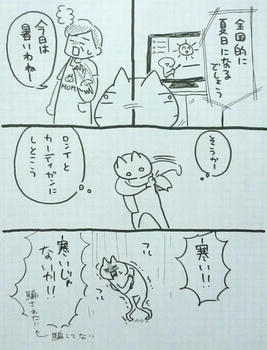 全国的に
夏日になる
でしょう
今日は
暑いわね
MOM
そうかー
ロンTと
カーディガンに
しとこう
フル
フル
寒い!!
寒いじゃ
ないか!!
騙された!!
騙してない